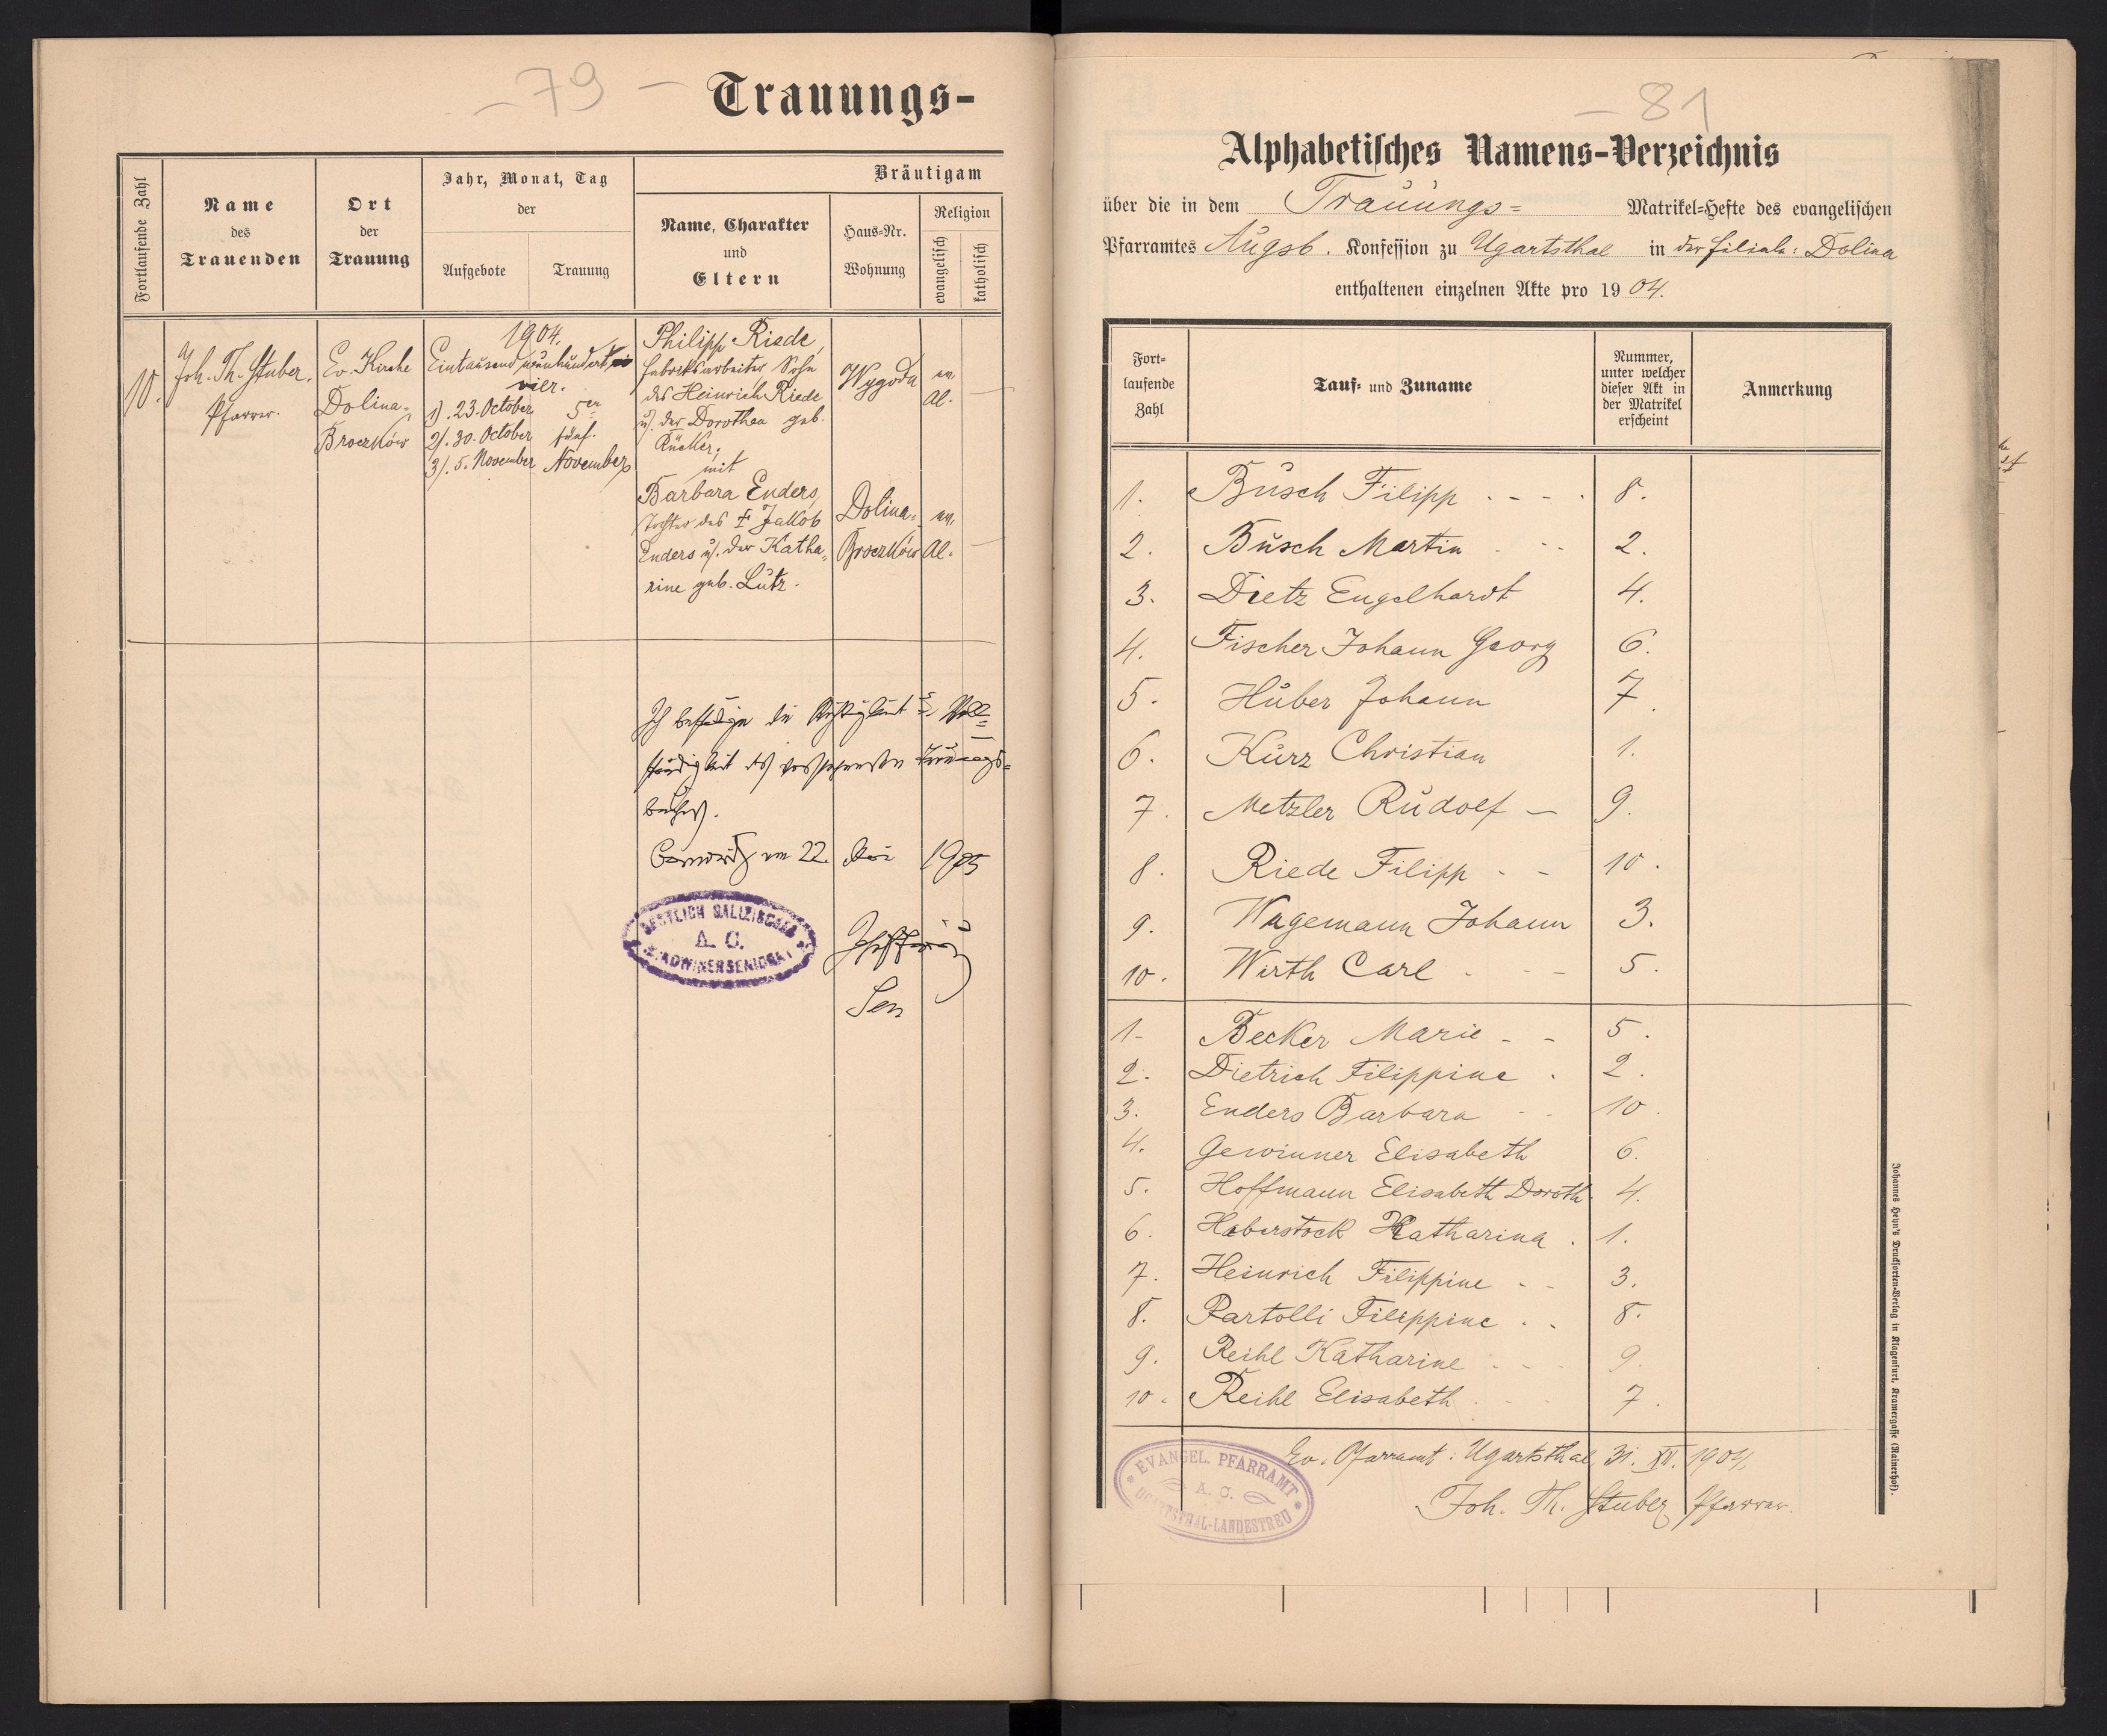 - 79 -
Trauungs-
Fortlaufende Zahl
Name
des
Trauenden
Ort
der
Trauung
Jahr, Monat, Tag
der
Aufgebote
Trauung
Bräutigam
Name, Charakter
und
Eltern
Haus-Nr.
Wohnung
Religion
evangelisch
katholisch
10.
Joh. Th. Stuber.
Pfarrer.
Ev. Kirche
Dolina-
Broczków
1904.
Eintausend neunhundert
vier.
1). 23. October
2). 30. October
3). 5. November
5ter
fünf.
November
Philipp Riede,
Fabriksarbeiter, Sohn
des Heinrich Riede
u). der Dorothea geb.
Rücker,
mit
Barbara Enders,
Tochter des † Jakob
Enders u). der Katha-
rine geb. Lutz.
Wygoda
ev.
Al.
Dolina-
Broczków
ev.
Al.
Ich bestätige die Richtigkeit u. Voll-
ständigkeit des vorstehenden Trauungs-
buches.
am 22. Mai 1905
OESTLICH GALIZISCHES
A. C.
Sen
- 81
Alphabetisches Namens-Verzeichnis
über die in dem Trauungs- Matrikel-Hefte des evangelischen
Pfarramtes Augsb. Konfession zu Ugartsthal in der Filiale: Dolina
enthaltenen einzelnen Akte pro 1904.
Fort-
laufende
Zahl
Tauf- und Zuname
Nummer,
unter welcher
dieser Akt in
der Matrikel
erscheint
Anmerkung
1. Busch Filipp . - - . 8.
2. Busch Martin . - - 2.
3. Dietz Engelhardt 4.
4. Fischer Johann Georg 6.
5. Huber Johann 7.
6. Kurz Christian 1.
7. Metzler Rudolf - 9.
8. Riede Filipp - - 10.
9. Wagemann Johann 3.
10. Wirth Carl . - - 5.
1- Becker Marie - - 5.
2. Dietrich Filippine . 2.
3. Enders Barbara - - 10.
4. Gewinner Elisabeth 6.
5. Hoffmann Elisabeth Doroth. 4.
6. Haberstock Katharina . 1.
7. Heinrich Filippine - - 3.
8. Partolli Filippine . . 8.
9. Reihl Katharine . - - 9.
10. Reihl Elisabeth . - - 7.
Ev. Pfarramt: Ugartsthal, 31. XII. 1904.
Joh. Th. Stuber, Pfarrer.
EVANGEL. PFARRAMT
A. C.
UGARTSTHAL-LANDESTREU
Johannes Heyn's Drucksorten-Verlag in Klagenfurt, Kramergasse (Rainerhof).